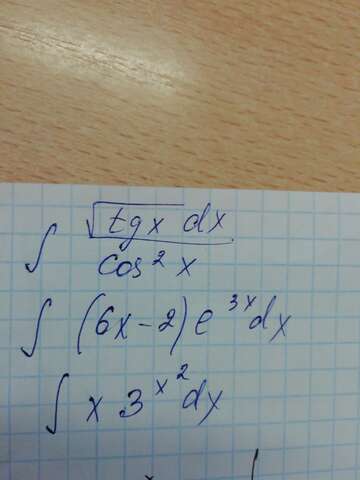 ∫ √tgx dx / cos² x
∫ (6x-2)e^{3x}dx
∫ x 3^{x^2}dx